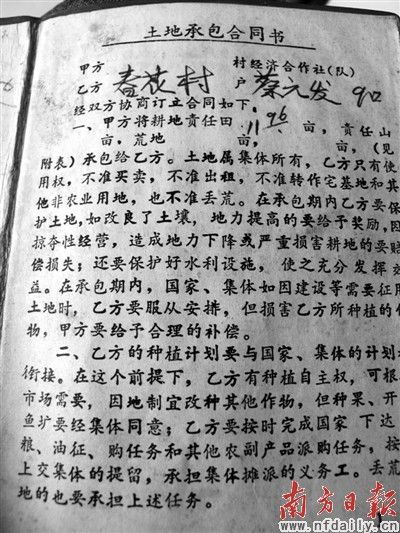 土地承包合同书
甲方 村经济合作社(队)
乙方 春花村 户 蔡元发 90
经双方协商订立合同如下。
一、甲方将耕地责任田 11 96 亩,责任山
亩,荒地 亩, 亩,(见
附表)承包给乙方。土地属集体所有,乙方只有使
用权,不准买卖,不准出租,不准转作宅基地和其
他非农业用地,也不准丢荒。在承包期内乙方要保
护土地,如改良了土壤,地力提高的要给予奖励,因
掠夺性经营,造成地力下降或严重损害耕地的要赔
偿损失;还要保护好水利设施,使之充分发挥效
益。在承包期内,国家、集体如因建设等需要征用
土地时,乙方要服从安排,但损害乙方所种植的作
物,甲方要给予合理的补偿。
二、乙方的种植计划要与国家、集体的计划相
衔接。在这个前提下,乙方有种植自主权,可根
市场需要,因地制宜改种其他作物,但种果、开
鱼圹要经集体同意;乙方要按时完成国家下达
粮、油征、购任务和其他农副产品派购任务,按
上交集体的提留,承担集体摊派的义务工。丢荒
地的也要承担上述任务。
南方日报
www.nfdaily.cn